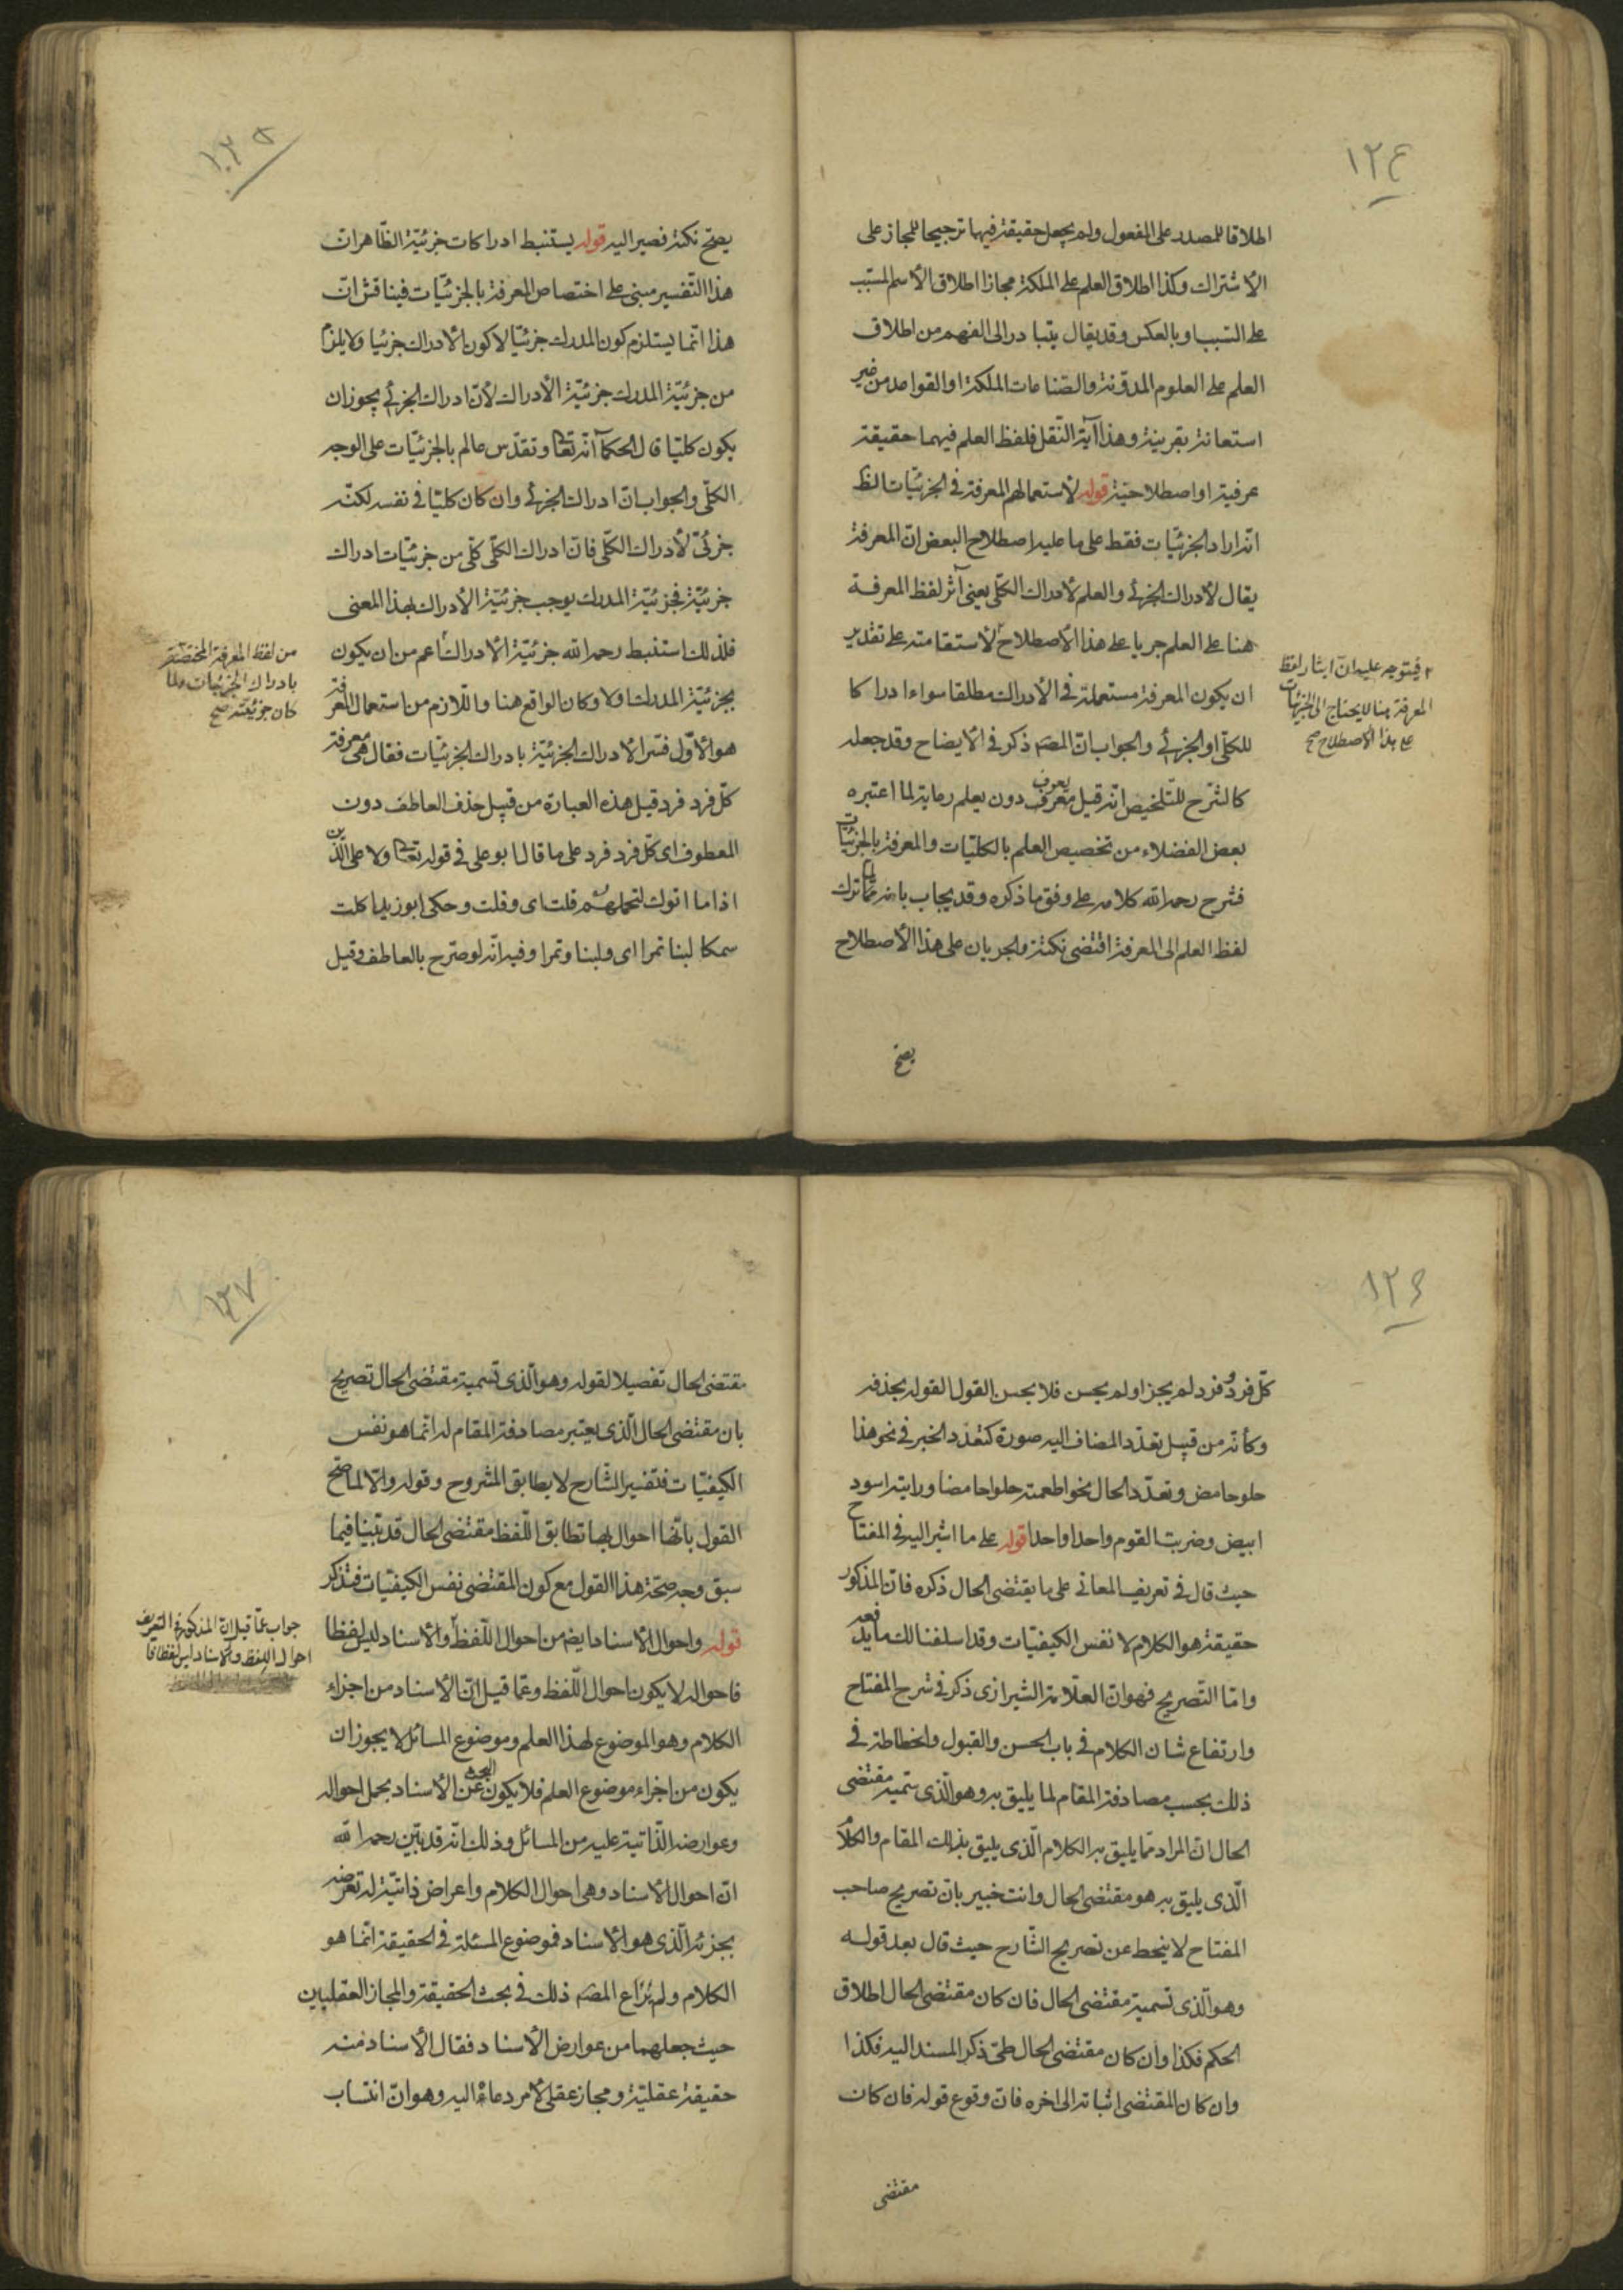 ١٢٤
اطلاقا للمصدر على المفعول ولم يجعل حقيقة فيها ترجيحا للمجاز على
الاشتراك وكذا اطلاق العلم على الملكة مجازا اطلاق الاسم المسبب
على السبب او بالعكس وقد يقال يتبادر الى الفهم من اطلاق
العلم على العلوم المدونة والصناعات الملكة او القواعد من غير
استعانة بقرينة وهذا آية النقل فلفظ العلم فيهما حقيقة
عرفية او اصطلاحية قوله لاستعمالهم المعرفة في الجزئيات الظ
انه اراد الجزئيات فقط على ما عليه اصطلاح البعض ان المعرفة
يقال لادراك الجزئي والعلم لادراك الكلي يعنى آثر لفظ المعرفة
هنا على العلم جريا على هذا الاصطلاح لاستقامته على تقدير
ان يكون المعرفة مستعملة في الادراك مطلقا سواء ادراكا
للكلي او الجزئي والجواب ان المصـ ذكر في الايضاح وقد جعله
كالشرح للتلخيص انه قيل يعرف دون يعلم رعاية لما اعتبره
بعض الفضلاء من تخصيص العلم بالكليات والمعرفة بالجزئيات
فشرح رحمه الله كلامه على وفق ما ذكره وقد يجاب بانه لما ترك
لفظ العلم الى المعرفة اقتضى نكتة والجريان على هذا الاصطلاح
فيتوجه عليه ان ايثار لفظ
المعرفة هنا لا يحتاج الى الجزئيات
على هذا الاصطلاح صح
يصح
١٢٥
يصح نكتة فصير اليه قوله يستنبط ادراكات جزئية الظاهر ان
هذا التفسير مبنى على اختصاص المعرفة بالجزئيات فيناقش ان
هذا انما يستلزم كون المدرك جزئيا لا كون الادراك جزئيا ولا يلزم
من جزئية المدرك جزئية الادراك لان ادراك الجزئي يجوز ان
يكون كليا قال الحكما آنه تعا وتقدس عالم بالجزئيات على الوجه
الكلي والجواب ان ادراك الجزئي وان كان كليا في نفسه لكنه
جزئي لادراك الكلي فان ادراك الكلي كلي من جزئيات ادراك
جزئية فجزئية المدرك يوجب جزئية الادراك بهذا المعنى
فلذلك استنبط رحمه الله جزئية الادراك اعم من ان يكون
بجزئية المدرك اولا وكان الواقع هنا واللازم من استعمال المعرفة
هو الاول فسر الادراك الجزئية بادراك الجزئيات فقال هى معرفة
كل فرد فرد قيل هذه العبارة من قبيل حذف العاطف دون
المعطوف اى كل فرد فرد على ما قال ابو على في قوله تعا ولا على الذين
اذا ما اتوك لتحملهم قلت اى وقلت وحكى ابو زيد اكلت
سمكا لبنا تمرا اى ولبنا وتمرا وفيه انه لو صرح بالعاطف وقيل
من لفظ المعرفة المختصة
بادراك الجزئيات ولما
كان جزئيته صح
١٢٦
كل فرد وفرد لم يجز او لم يحسن فلا يحسن القول القوله بحذفه
وكأنه من قبيل تعدد المضاف اليه صورة كتعدد الخبر في نحو هذا
حلو حامض وتعدد الحال نحو اطعمته حلوا حامضا ورايته اسود
ابيض وضربت القوم واحدا واحدا قوله على ما اشير اليه في المفتاح
حيث قال في تعريف المعانى على ما يقتضى الحال ذكره فان المذكور
حقيقة هو الكلام لا نفس الكيفيات وقد اسلفنا لك ما يدفعه
واما التصريح فهو ان العلامة الشيرازى ذكر في شرح المفتاح
وارتفاع شان الكلام في باب الحسن والقبول وانحطاطه في
ذلك بحسب مصادفة المقام لما يليق به وهو الذى نسميه مقتضى
الحال ان المراد مما يليق به الكلام الذى يليق بذلك المقام والكلام
الذى يليق به هو مقتضى الحال وانت خبير بان تصريح صاحب
المفتاح لا ينحط عن تصريح الشارح حيث قال بعد قوله
وهو الذى نسميه مقتضى الحال فان كان مقتضى الحال اطلاق
الحكم فكذا وان كان مقتضى الحال طى ذكر المسند اليه فكذا
وان كان المقتضى اثباته الى اخره فان وقوع قوله فان كان
مقتضى
١٢٧
مقتضى الحال تفصيلا لقوله وهو الذى نسميه مقتضى الحال تصريح
بان مقتضى الحال الذى يعتبر مصادفة المقام له انما هو نفس
الكيفيات فتفسير الشارح لا يطابق المشروح وقوله والا لما صح
القول بانها احوال بها تطابق اللفظ مقتضى الحال قد بينا فيما
سبق وجه صحة هذا القول مع كون المقتضى نفس الكيفيات فتذكر
قوله واحوال الاسناد ايضم من احوال اللفظ والاسناد ليس لفظا
فاحواله لا يكون احوال اللفظ وعما قيل ان الاسناد من اجزاء
الكلام وهو الموضوع لهذا العلم وموضوع المسائل لا يجوز ان
يكون من اجزاء موضوع العلم فلا يكون البحث عن الاسناد بحمل احواله
وعوارضه الذاتية عليه من المسائل وذلك انه قد بين رحمه الله
ان احوال الاسناد وهى احوال الكلام واعراض ذاتية له تعرضه
بجزئه الذى هو الاسناد فموضوع المسئلة في الحقيقة انما هو
الكلام ولم يراع المصـ ذلك في بحث الحقيقة والمجاز العقليين
حيث جعلهما من عوارض الاسناد فقال الاسناد منه
حقيقة عقلية ومجاز عقلي لأمر دعاه اليه وهو ان انتساب
جواب عما قيل ان المذكور في التعريف
احوال اللفظ والاسناد ليس لفظا فا